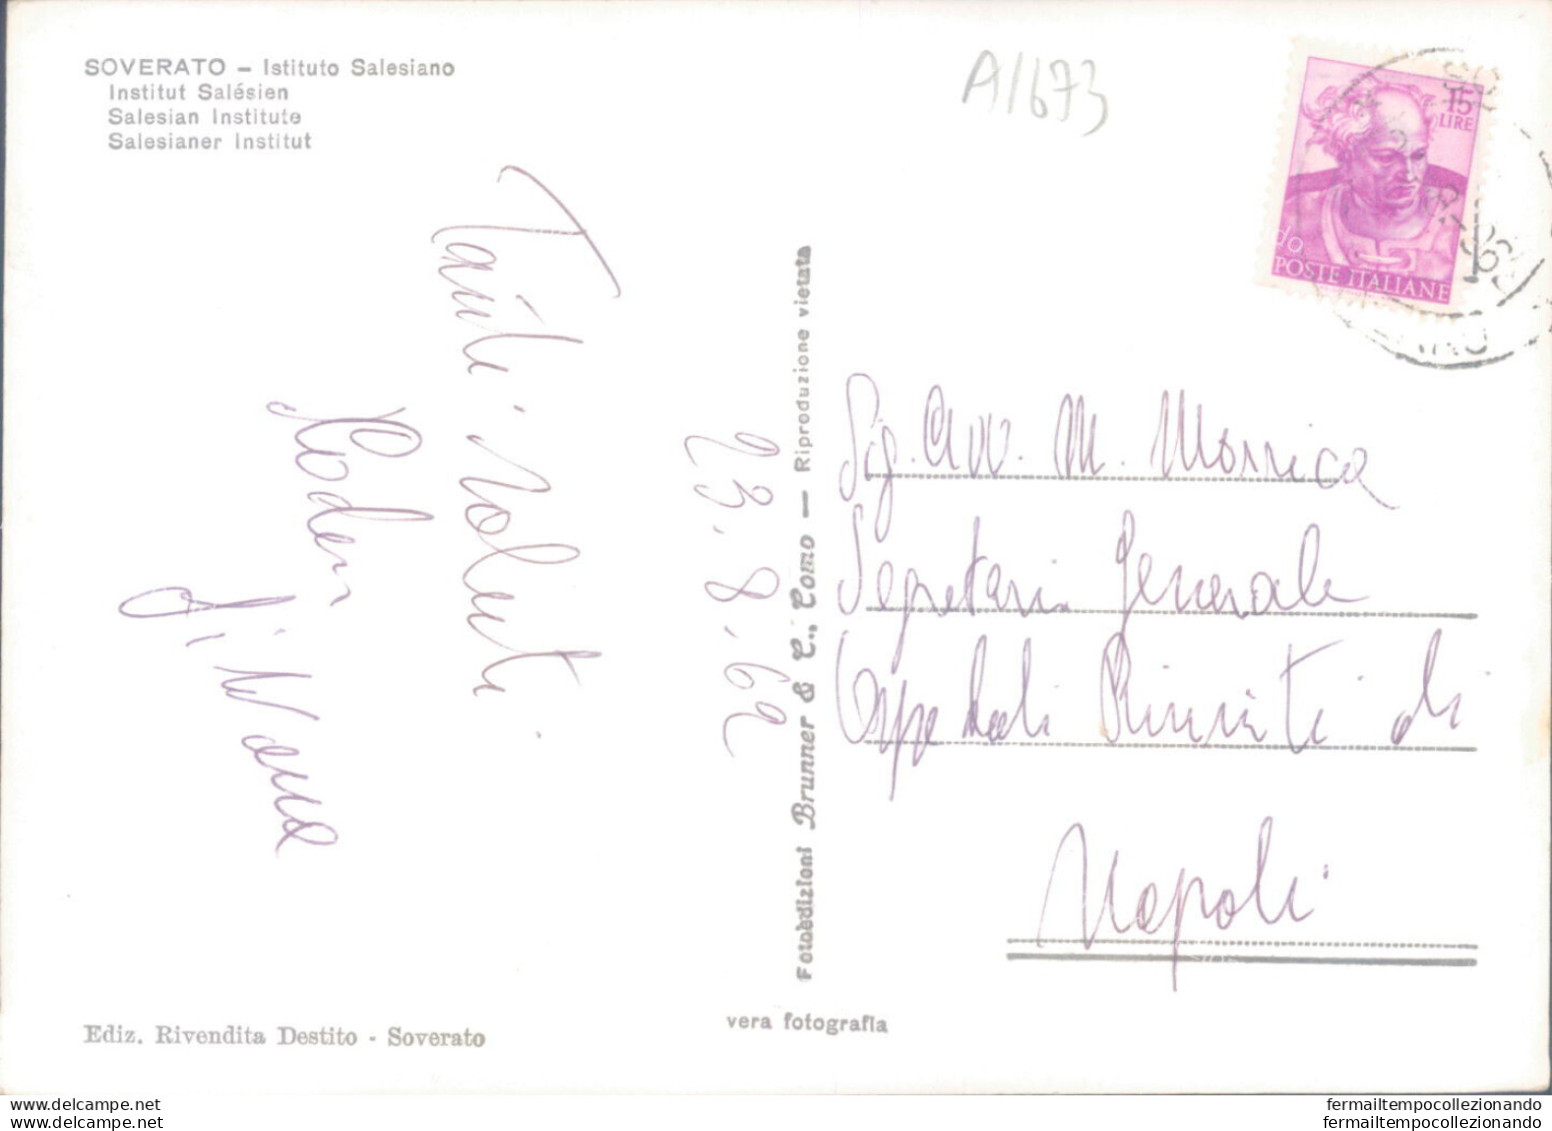 SOVERATO – Istituto Salesiano
Institut Salésien
Salesian Institute
Salesianer Institut
A/1673
15
LIRE
POSTE ITALIANE
Tanti saluti
23.8.62
Fotoedizioni Brunner & C., Como — Riproduzione vietata
Sig. Avv. M. Morrica
Segretario Generale
Ospedali Riuniti di
Napoli
vera fotografia
Ediz. Rivendita Destito - Soverato
www.delcampe.net
www.delcampe.net
fermailtempocollezionando
fermailtempocollezionando